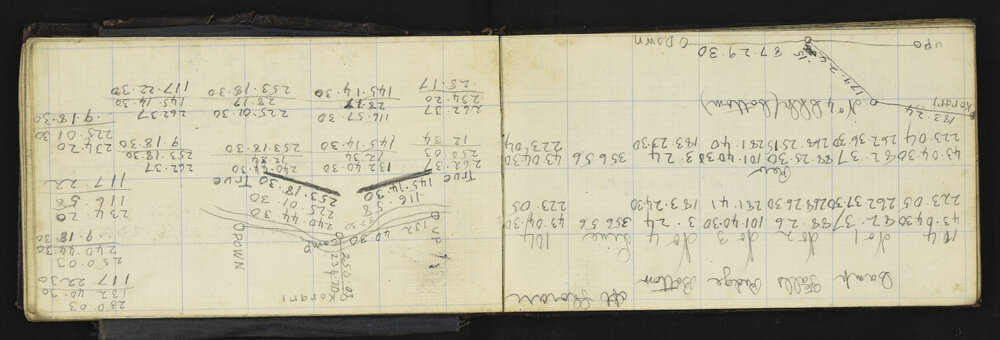 Bank Falls Ridge Bottom
104 No 1 No 2 No 3 No 4 Line 104
43.04.30 82.37 88.26 101.40.30 3.24 356.56 43.04.30
223.05 262.37.30 281.41 183.24.30 223.05
Rev
43.04.30 82.37 88.25.30 101.40.30 3.24 356.56 43.04.30
223.04 262.36.30 281.40 183.23.30 223.04
183.24
Korari
No 4 (bottom)
179.24.15
87.29.30
UPO
O DOWN
250.03
132.40.30
117.22.30
250.03
240.44.30
9.18.30
234.20
116.58
117.22
234.20
225.01.30
9.18.30
KORARI
250.03
234.20
O Camp
O DOWN
240.44.30
225.01.30
253.18.30 True
O UP
132.40.30
116.58
145.14.30
True
262.37
253.18.30
9.18.30
240.44.30
12.34
253.18.30
132.40.30
12.34
145.14.30
262.37
250.03
12.34
262.37
145.14.30
117.22.30
225.01.30
28.17
253.18.30
116.57.30
28.17
145.14.30
262.37
234.20
28.17